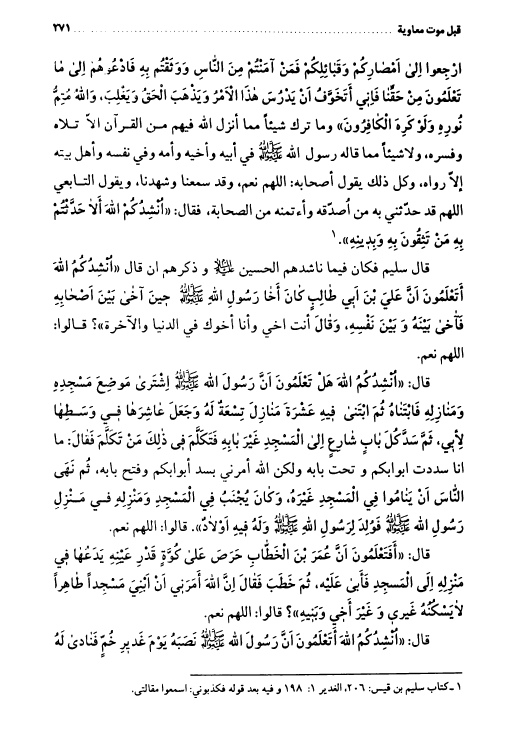 قبل موت معاوية ........ ٢٧١
ارْجِعوا اِلىٰ اَمْصٰارِكُمْ وَقَبٰائِلِكُمْ فَمَنْ آمَنْتُمْ مِنَ النّٰاسِ وَوَثَقْتُم بِهِ فَادْعُوهُم اِلىٰ مٰا
تَعْلَمُونَ مِنْ حَقِّنٰا فَاِنِي اَتَخَوَّفُ اَنْ يَدْرُسَ هٰذٰا الْاَمْرُ وَيَذْهَبَ الْحَقُ وَيَغْلِبَ، وَاللهُ مُتِمُّ
نُورِهِ وَلَوْ كَرِهَ الْكٰافِرُونَ» وما ترك شيئاً مما أنزل الله فيهم مـن القـرآن الاّ تـلاه
وفسره، ولاشيئاً مما قاله رسول الله ﷺ في أبيه وأخيه وأمه وفي نفسه وأهل بيته
إلاّ رواه، وكل ذلك يقول أصحابه: اللهم نعم، وقد سمعنا وشهدنا، ويقول التـابعي
اللهم قد حدّثني به من اُصدّقه وأءتمنه من الصحابة، فقال: «اُنْشِدُكُمْ اللهَ اَلاٰ حَدَّثْتُمْ
بِهِ مَنْ تَثِقُونَ بِهِ وَبِدِينِهِ».١
قال سليم فكان فيما ناشدهم الحسين ﷺ و ذكرهم ان قال «اُنْشِدُكُمُ اللهَ
اَتَعْلَمُونَ اَنَّ عَلِيَ بْنَ اَبي طٰالِبٍ كٰانَ اَخٰا رَسُولِ اللهِ ﷺ حِينَ آخىٰ بَيْنَ اَصْحٰابِهِ
فَآخىٰ بَيْنَهُ وَ بَيْنَ نَفْسِهِ، وَقٰالَ أنت اخي وأنا أخوك في الدنيا والآخرة»؟ قـالوا:
اللهم نعم.
قال: «اُنْشِدُكُمُ اللهَ هَلْ تَعْلَمُونَ اَنَّ رَسُولَ الله ﷺ اِشْتَرىٰ مَوْضِعَ مَسْجِدِهِ
وَمَنٰازِلِهِ فَابْتَنٰاهُ ثُمَ ابْتَنىٰ فِيهِ عَشْرَةَ مَنٰازِلَ تِسْعَةً لَهُ وَجَعَلَ عٰاشِرَهٰا فِـي وَسَـطِهٰا
لِاَبي، ثُمَّ سَدَّ كُلَ بٰابٍ شٰارِعٍ اِلىٰ الْمَسْجِدِ غَيْرَ بٰابِهِ فَتَكَلَّمَ فِى ذٰلِكَ مَنْ تَكَلَّمَ فَقٰالَ: ما
انا سددت ابوابكم و تحت بابه ولكن الله أمرني بسد أبوابكم وفتح بابه، ثُم نَهَى
النّٰاسَ اَنْ يَنٰامُوا فِي الْمَسْجِدِ غَيْرَهُ، وَكٰانَ يُجْنَبُ فِي الْمَسْجِدِ وَمَنْزِلِهِ فـي مَـنْزِلِ
رَسُولِ الله ﷺ فَوُلِدَ لِرَسُولِ اللهِ ﷺ وَلَهُ فِيهِ اَوْلاٰدٌ». قالوا: اللهم نعم.
قال: «اَفَتَعْلَمُونَ اَنَّ عُمَرَ بْنَ الْخَطّٰابِ حَرَصَ عَلىٰ كُوَّةٍ قَدْرِ عَيْنِهِ يَدَعُهٰا فِى
مَنْزِلِهِ اِلَى الْمَسْجِدِ فَأَبىٰ عَلَيْهِ، ثُمَ خَطَبَ فَقٰالَ اِنَّ اللهَ اَمَرَنِي اَنْ اَبْنِيَ مَسْجِداً طٰاهِراً
لاٰ يَسْكُنُهُ غَيرِي وَ غَيْرَ اَخِي وَبَنِيهِ»؟ قالوا: اللهم نعم.
قال: «اُنْشِدُكُمُ اللهَ اَتَعْلَمُونَ اَنَّ رَسُولَ الله ﷺ نَصَبَهُ يَوْمَ غَدِيرِ خُمٍّ فَنٰادىٰ لَهُ
١ ـ كتاب سليم بن قيس: ٢٠٦، الغدير ١: ١٩٨ و فيه بعد قوله فكذبوني: اسمعوا مقالتى.